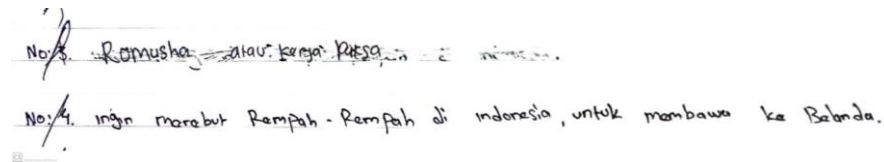 No: 3. Romusha atau kerja Paksa
No: 4. ingin merebut Rempah - Rempah di indonesia, untuk membawa ke Belanda.